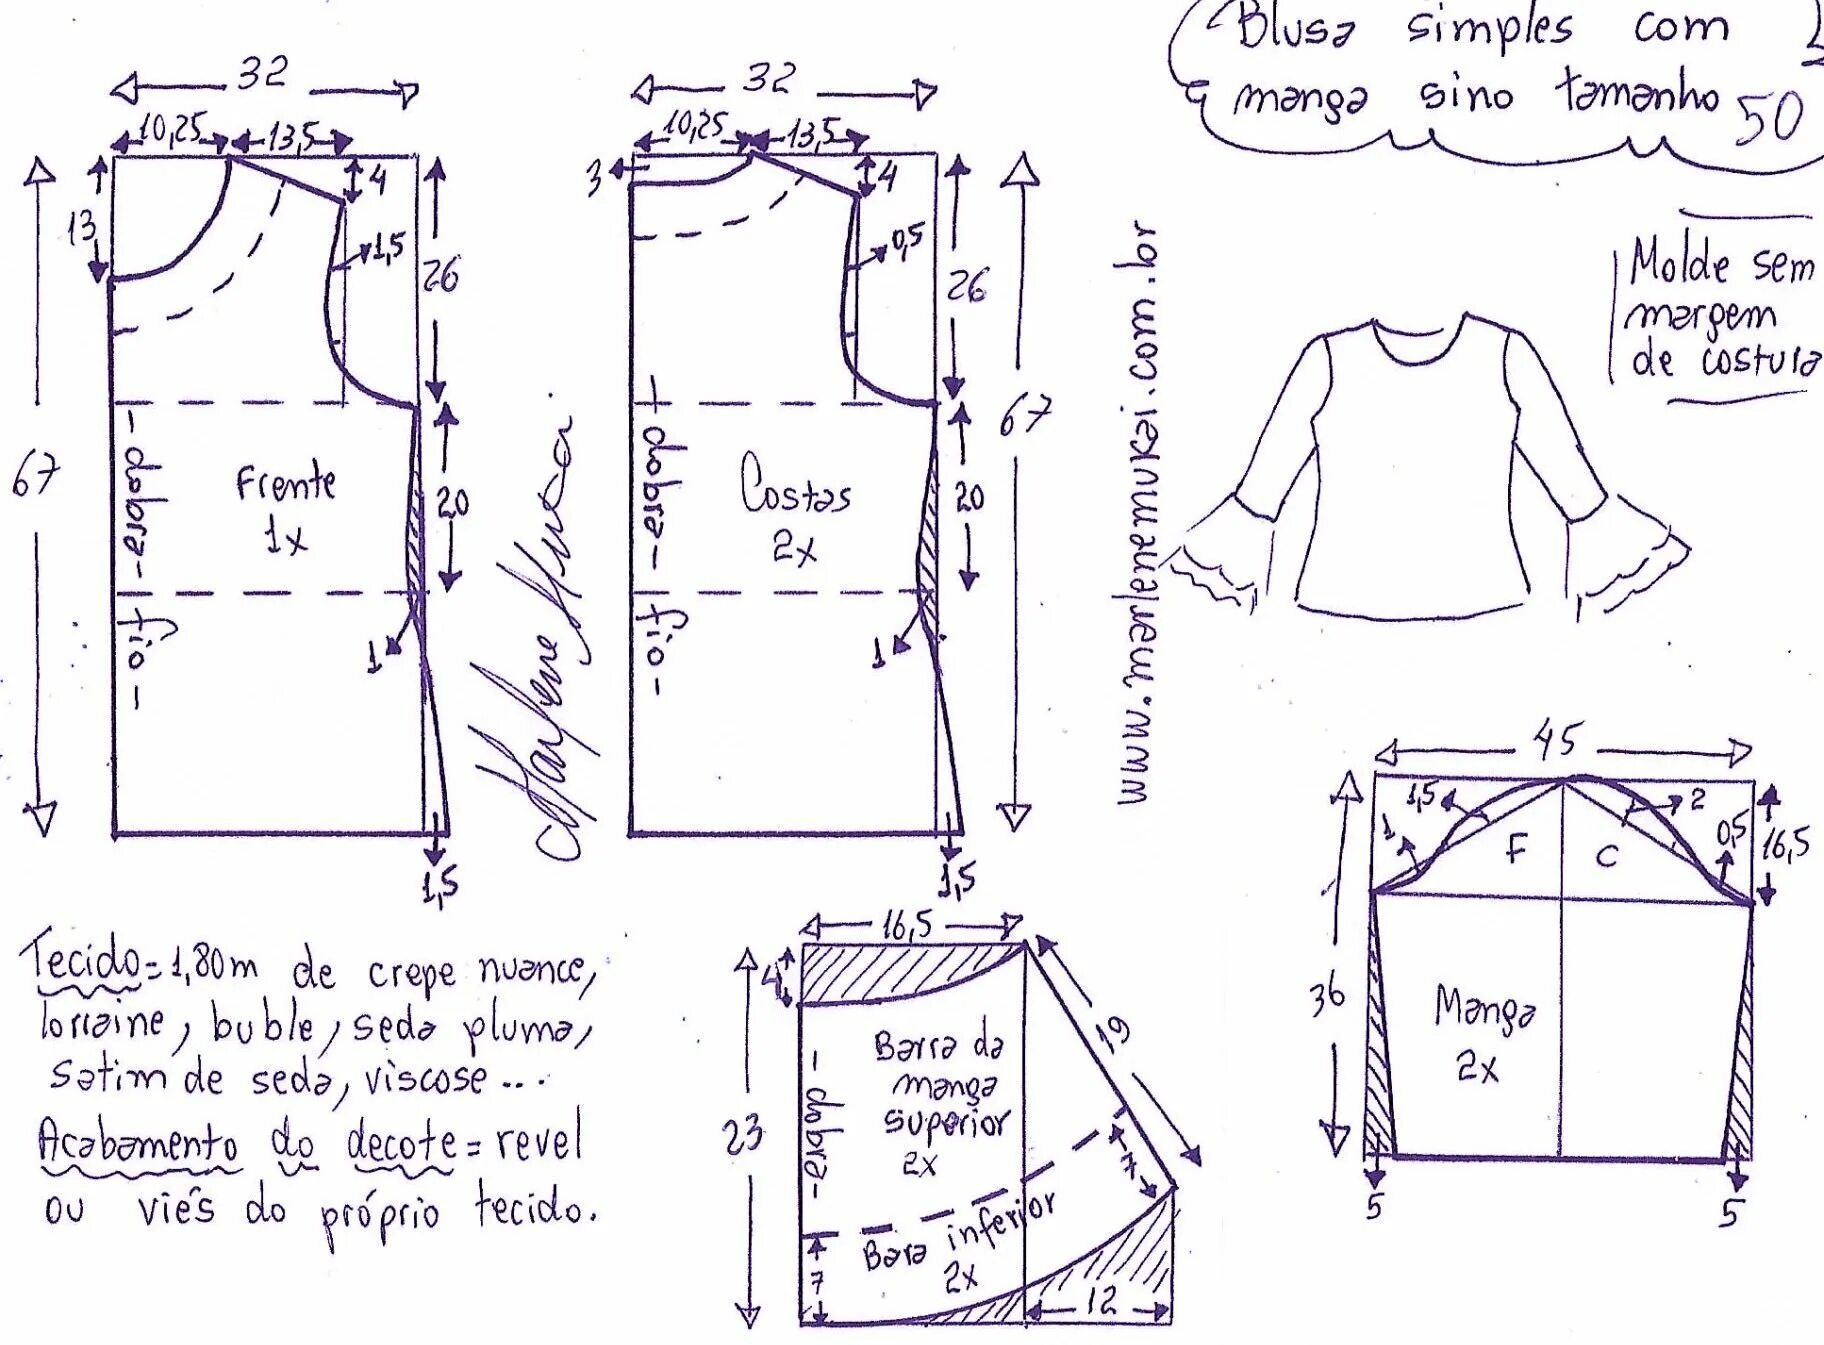 Blusa simples com
manga sino tamanho 50
Molde sem
margem
de costura
32
10,25
13,5
4
13
1,5
26
67
dobra
fio
Frente
1x
20
1
1,5
32
10,25
13,5
3
4
0,5
26
67
dobra
fio
Costas
2x
20
1
1,5
Marlene Mukai
www.marlenemukai.com.br
45
1,5
2
1
0,5
16,5
F
C
36
Manga
2x
5
5
Tecido = 1,80m de crepe nuance,
lorraine, buble, seda pluma,
satim de seda, viscose...
Acabamento do decote = revel
ou viés do próprio tecido.
16,5
4
19
23
dobra
Barra da
manga
superior
2x
7
7
Bara inferior
2x
12